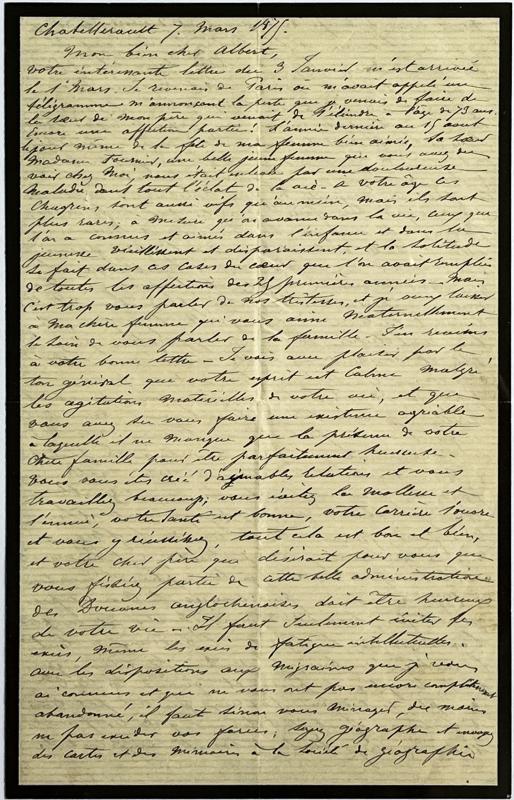 Chatellerault 7. Mars 1875.
Mon bien cher Albert,
votre intéressante lettre du 3 Janvier m'est arrivée
le 1er Mars. Je revenais de Paris où m'avait appelé un
télégramme m'annonçant la perte que je venais de faire de
la sœur de mon père qui venait de s'éteindre à l'âge de 73 ans.
Encore une affection partie. L'année dernière au 15 Aout
le jour même de la fête de ma femme bien aimée, sa sœur
Madame Fournier, une belle jeune femme que vous avez du
voir chez moi, nous était enlevée par une douloureuse
maladie, dans tout l'éclat de la vie. A votre âge ces
chagrins sont aussi vifs qu'au mien, mais ils sont
plus rares; à mesure qu'on avance dans la vie, ceux que
l'on a connus et aimés dans l'enfance et dans la
jeunesse vieillissent et disparaissent et la solitude
se fait dans ces cases du cœur que l'on avait remplies
de toutes les affections des 25 premières années. Mais
c'est trop vous parler de nos tristesses, et je veux laisser
à ma chère femme qui vous aime maternellement
le soin de vous parler de la famille. J'en reviens
à votre bonne lettre. J'y vois avec plaisir par le
ton général que votre esprit est calme malgré
les agitations matérielles de votre vie, et que
vous avez su vous faire une existence agréable
à laquelle il ne manque que la présence de votre
chère famille pour être parfaitement heureuse.
Vous vous êtes créé d'aimables relations et vous
travaillez beaucoup; vous évitez la mollesse et
l'ennui, votre santé est bonne, votre carrière s'ouvre
et vous y réussissez, tout cela est bon et bien,
et votre cher père qui désirait pour vous que
vous fissiez partie de cette belle administration
des Douanes anglochinoises doit être heureux
de votre vie. Il faut seulement éviter les
excès, même les excès de fatigue intellectuelle.
avec les dispositions aux migraines que je vous
ai connues et qui ne vous ont pas encore complètement
abandonné, il faut sinon vous ménager, du moins
ne pas excéder vos forces; soyez géographe et envoyez
des cartes et des mémoires à la Société de géographie